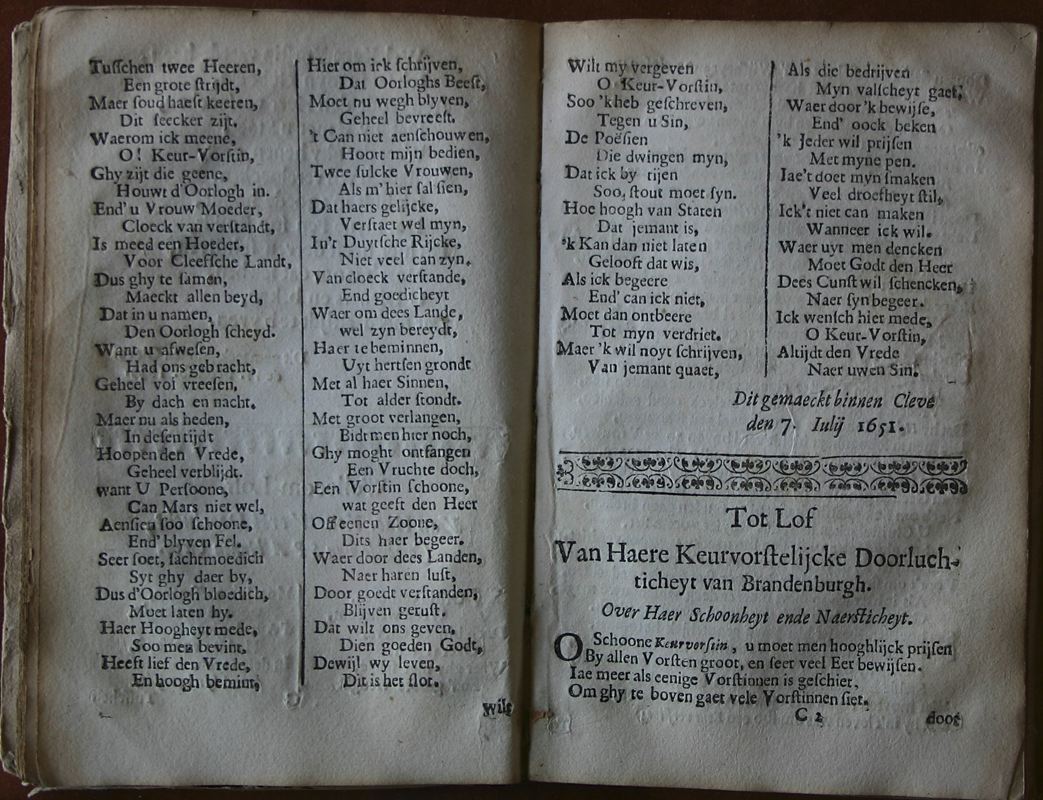 Tusschen twee Heeren,
Een grote strijdt,
Maer soud haest keeren,
Dit seecker zijt,
Waerom ick meene,
O! Keur-Vorstin,
Ghy zijt die geene,
Houwt d'Oorlogh in.
End' u Vrouw Moeder,
Cloeck van verstandt,
Is meed een Hoeder,
Voor Cleefsche Landt,
Dus ghy te samen,
Maeckt allen beyd,
Dat in u namen,
Den Oorlogh scheyd.
Want u afwesen,
Had ons gebracht,
Geheel vol vreesen,
By dach en nacht.
Maer nu als heden,
In desen tijdt
Hoopen den Vrede,
Geheel verblijdt.
want U Persoone,
Can Mars niet wel,
Aensien soo schoone,
End' blyven Fel.
Seer soet, sachtmoedich
Syt ghy daer by,
Dus d'Oorlogh bloedich,
Moet laten hy.
Haer Hoogheyt mede,
Soo men bevint,
Heeft lief den Vrede,
En hoogh bemint,
Hier om ick schrijven,
Dat Oorloghs Beest,
Moet nu wegh blyven,
Geheel bevreest.
't Can niet aenschouwen,
Hoort mijn bedien,
Twee sulcke Vrouwen,
Als m' hier sal sien,
Dat haers gelijcke,
Verstaet wel myn,
In't Duytsche Rijcke,
Niet veel can zyn.
Van cloeck verstande,
End goedicheyt
Waer om dees Lande,
wel zyn bereydt,
Haer te beminnen,
Uyt hertsen grondt
Met al haer Sinnen,
Tot alder stondt.
Met groot verlangen,
Bidt men hier noch,
Ghy moght ontfangen
Een Vruchte doch,
Een Vorstin schoone,
wat geeft den Heer
Oft eenen Zoone,
Dits haer begeer.
Waer door dees Landen,
Naer haren lust,
Door goedt verstanden,
Blijven gerust.
Dat wilt ons geven,
Dien goeden Godt,
Dewijl wy leven,
Dit is het slot.
Wilt
Wilt my vergeven
O Keur-Vorstin,
Soo 'kheb geschreven,
Tegen u Sin,
De Poësien
Die dwingen myn,
Dat ick by tijen
Soo, stout moet syn.
Hoe hoogh van Staten
Dat jemant is,
'k Kan dan niet laten
Gelooft dat wis,
Als ick begeere
End' can ick niet,
Moet dan ontbeere
Tot myn verdriet.
Maer 'k wil noyt schrijven,
Van jemant quaet,
Als die bedrijven
Myn valscheyt gaet,
Waer door 'k bewijse,
End' oock beken
'k Jeder wil prijsen
Met myne pen.
Iae't doet myn smaken
Veel droefheyt stil,
Ick't niet can maken
Wanneer ick wil.
Waer uyt men dencken
Moet Godt den Heer
Dees Cunst wil schencken,
Naer syn begeer.
Ick wensch hier mede,
O Keur-Vorstin,
Altijdt den Vrede
Naer uwen Sin.
Dit gemaeckt binnen Cleve
den 7. Iulij 1651.
Tot Lof
Van Haere Keurvorstelijcke Doorluch-
ticheyt van Brandenburgh.
Over Haer Schoonheyt ende Naersticheyt.
O Schoone Keurvorstin, u moet men hooghlijck prijsen
By allen Vorsten groot, en seer veel Eer bewijsen.
Iae meer als eenige Vorstinnen is geschiet,
Om ghy te boven gaet vele Vorstinnen siet.
C 2
door